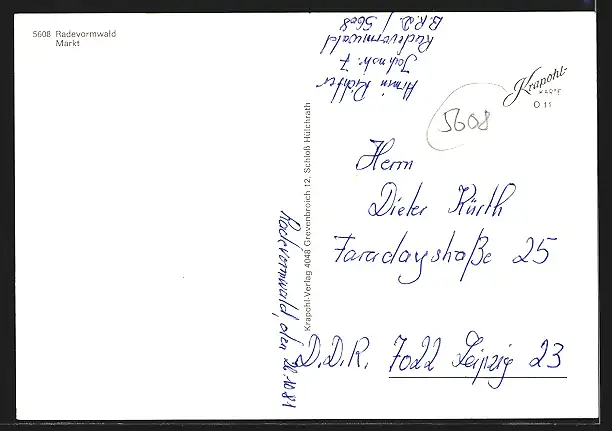 5608 Radevormwald
Markt
Armin Richter
Jahnstr. 7
Radevormwald
B.R.D. / 5608
Krapohl-
KARTE
O 11
5608
Krapohl-Verlag 4048 Grevenbroich 12, Schloß Hülchrath
Radevormwald, den 26.10.81
Herrn
Dieter Kürth
Faradaystraße 25
D.D.R. 7022 Leipzig 23